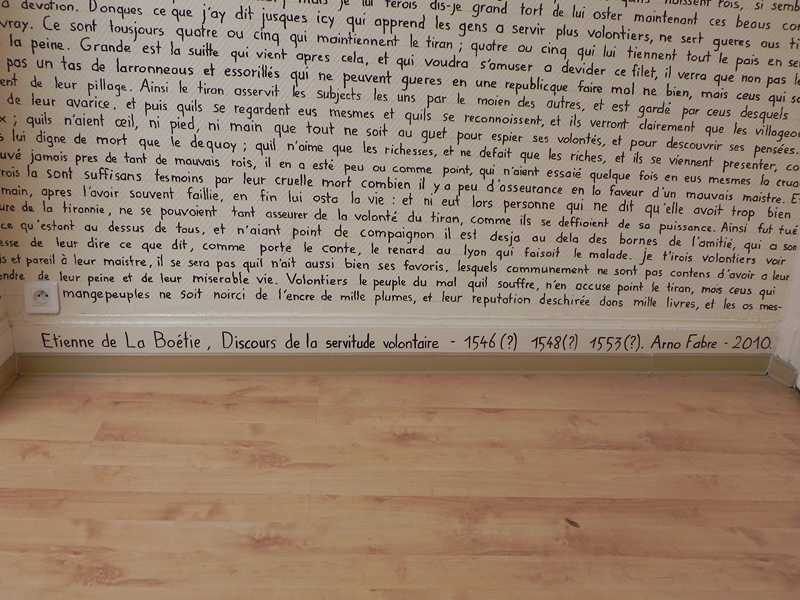 a devotion. Donques ce que j'ay dit jusques icy qui apprend les gens a servir plus volontiers, ne sert gueres aus ti
vray. Ce sont tousjours quatre ou cinq qui maintiennent le tiran ; quatre ou cinq qui lui tiennent tout le pais en se
la peine. Grande est la suitte qui vient apres cela, et qui voudra s'amuser a devider ce filet, il verra que non pas le
pas un tas de larronneous et essorillés qui ne peuvent gueres en une republicque faire mal ne bien, mais ceus qui so
ent de leur pillage. Ainsi le tiran asservit les subjects les uns par le moien des autres, et est gardé par ceus desquels
de leur avarice, et puis quils se regardent eus mesmes et quils se reconnoissent, et ils verront clairement que les villageoi
x ; quils n'aient œil, ni pied, ni main que tout ne soit au guet pour espier ses volontés, et pour descouvrir ses pensées.
s lui digne de mort que le dequoy ; quil n'aime que les richesses, et ne defait que les riches, et ils se viennent presenter, co
uvé jamais pres de tant de mauvais rois, il en a esté peu ou comme point, qui n'aient essaié quelque fois en eus mesmes la crua
rois la sont suffisans tesmoins par leur cruelle mort combien il y a peu d'asseurance en la faveur d'un mauvais maistre. E
main, apres l'avoir souvent faillie, en fin lui osta la vie : et ni eut lors personne qui ne dit qu'elle avoit trop bien
ure de la tirannie, ne se pouvoient tant asseurer de la volonté du tiran, comme ils se deffioient de sa puissance. Ainsi fut tué
ce qu'estant au dessus de tous, et n'aiant point de compaignon il est desja au dela des bornes de l'amitié, qui a son
esse de leur dire ce que dit, comme porte le conte, le renard au lyon qui faisoit le malade. Je t'irois volontiers voir
is et pareil à leur maistre, il se sera pas quil n'ait aussi bien ses favoris, lesquels communement ne sont pas contens d'avoir a leur
endre de leur peine et de leur miserable vie. Volontiers le peuple du mal quil souffre, n'en accuse point le tiran, mais ceus qui
mangepeuples ne soit noirci de l'encre de mille plumes, et leur reputation deschirée dans mille livres, et les os mes-
Etienne de La Boétie, Discours de la servitude volontaire - 1546(?) 1548(?) 1553(?). Arno Fabre - 2010.